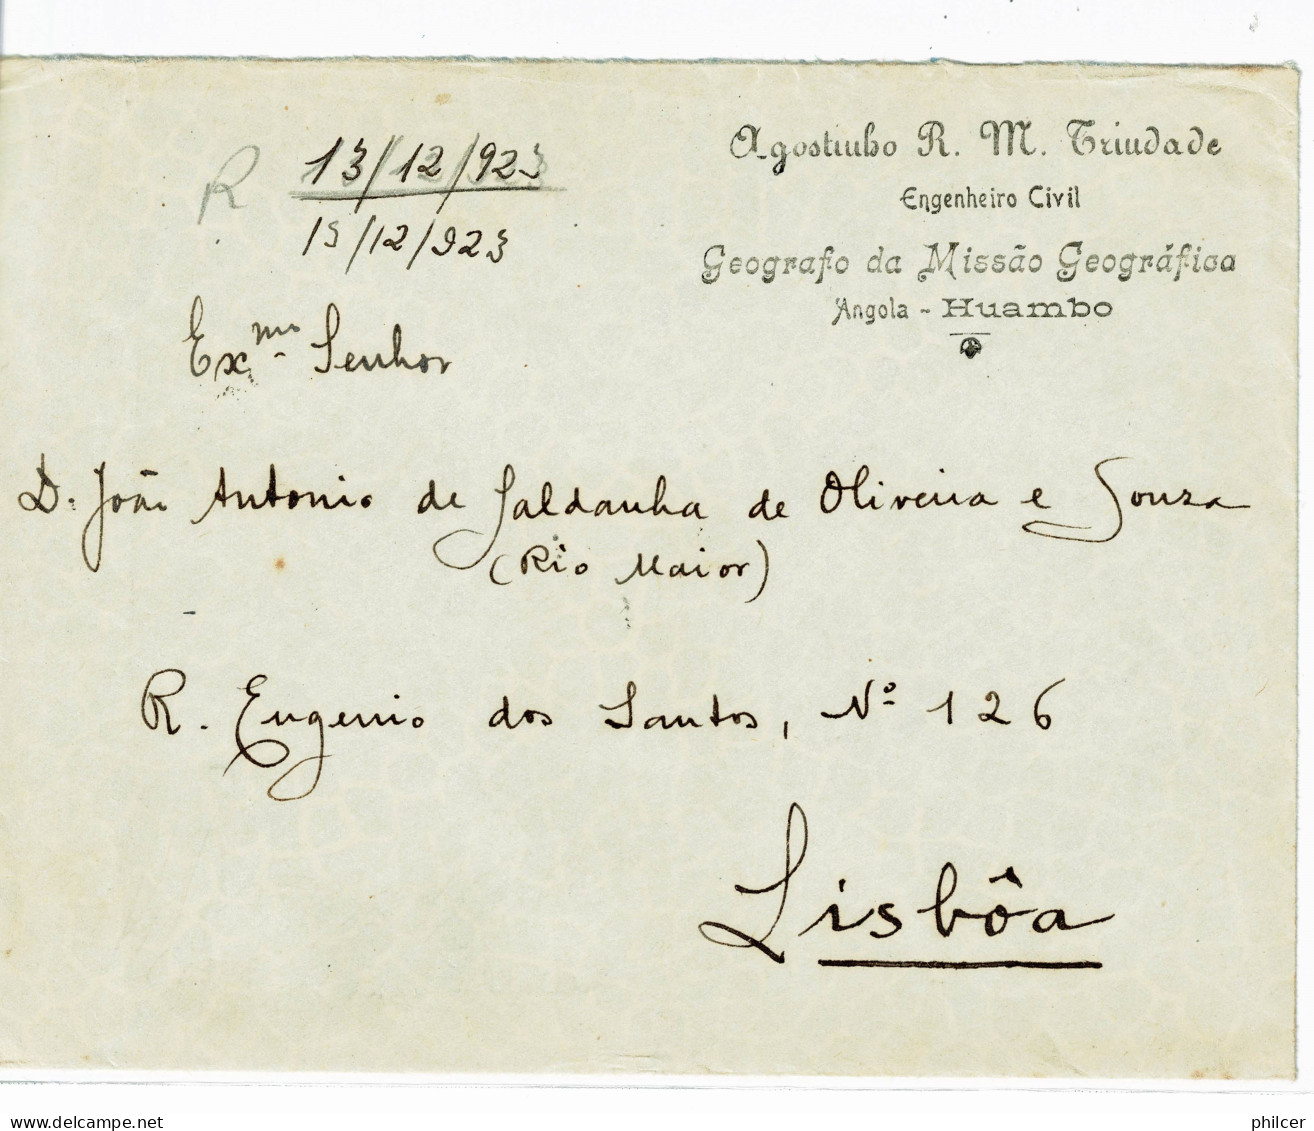 Agostinho R. M. Trindade
Engenheiro Civil
Geografo da Missão Geográfica
Angola - Huambo
R 13/12/923
15/12/923
Exmo Senhor
D. João Antonio de Saldanha de Oliveira e Souza
(Rio Maior)
R. Eugenio dos Santos, Nº 126
Lisbôa
www.delcampe.net
philcer